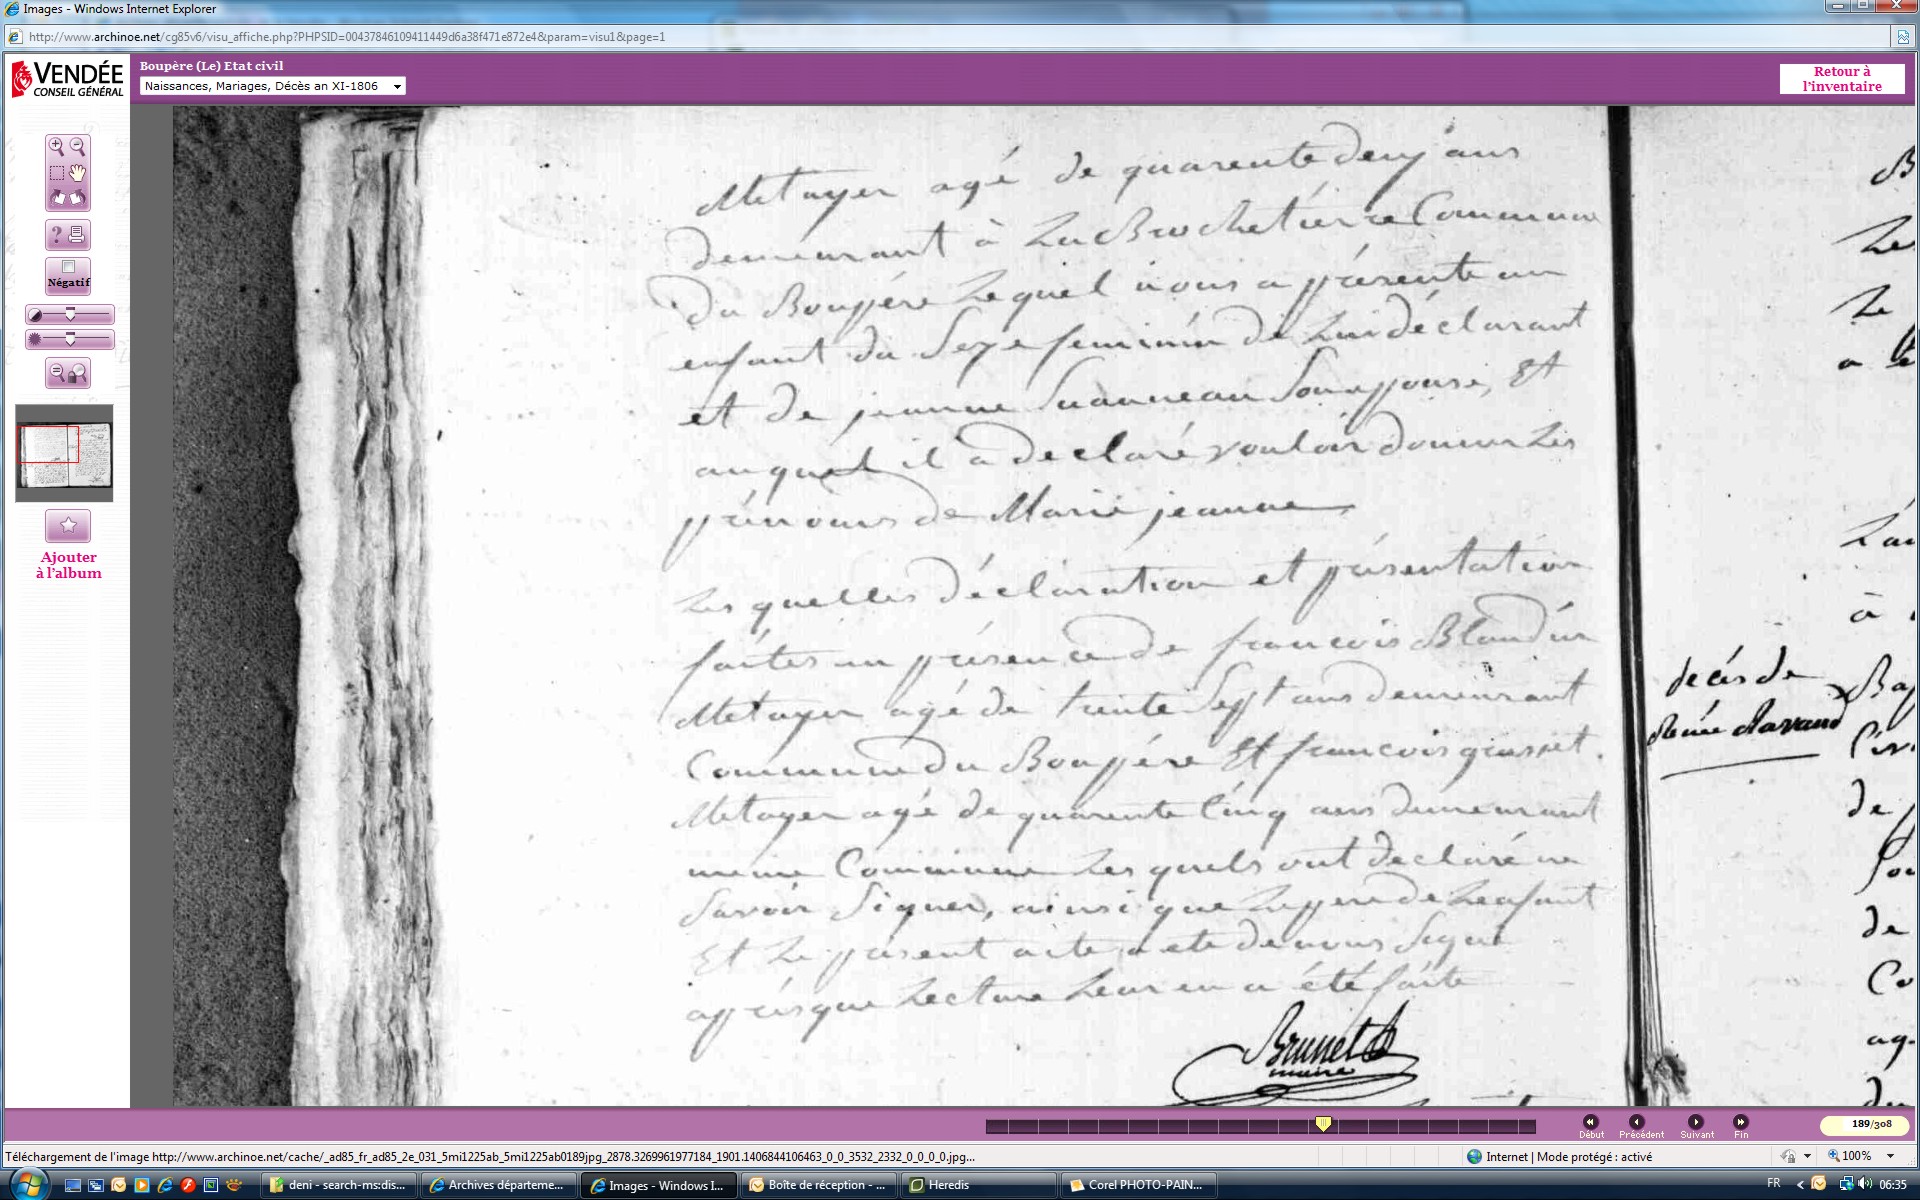 Images - Windows Internet Explorer
http://www.archinoe.net/cg85v6/visu_affiche.php?PHPSID=00437846109411449d6a38f471e872e4&param=visu1&page=1
VENDÉE
CONSEIL GÉNÉRAL
Boupère (Le) Etat civil
Naissances, Mariages, Décès an XI-1806
Retour à
l'inventaire
Négatif
Ajouter
à l'album
Metayer agé de quarente deux ans
demeurant à La Brochetierre Commune
du Boupére Lequel nous a présenté un
enfant du Sexe feminin de Lui déclarant
et de jeanne Suauneau Son epouse, Et
auquel il a declaré vouloir donner Les
prénoms de Marie jeanne
Les quelles déclaration et présentation
faites en présence de francois Blandin
Metayer agé de trente Sept ans demeurant
Commune du Boupére Et francois
Metayer agé de quarente Cinq ans demeurant
meme Commune Les quels ont declaré ne
Savoir Signer, ainsi que Le pere de Lenfant
Et Le present acte a ete de nous Signé
après que Lecture Leur en a été faite
Brunet
maire
décès de
Renée
B
Le
Le
à
de
de
Co
ag
du
Début
Précédent
Suivant
Fin
189/308
Téléchargement de l'image http://www.archinoe.net/cache/_ad85_fr_ad85_2e_031_5mi1225ab_5mi1225ab0189jpg_2878.3269961977184_1901.1406844106463_0_0_3532_2332_0_0_0_0.jpg...
Internet | Mode protégé : activé
100%
deni - search-ms:dis...
Archives départeme...
Images - Windows I...
Boîte de réception - ...
Heredis
Corel PHOTO-PAIN...
FR
06:35